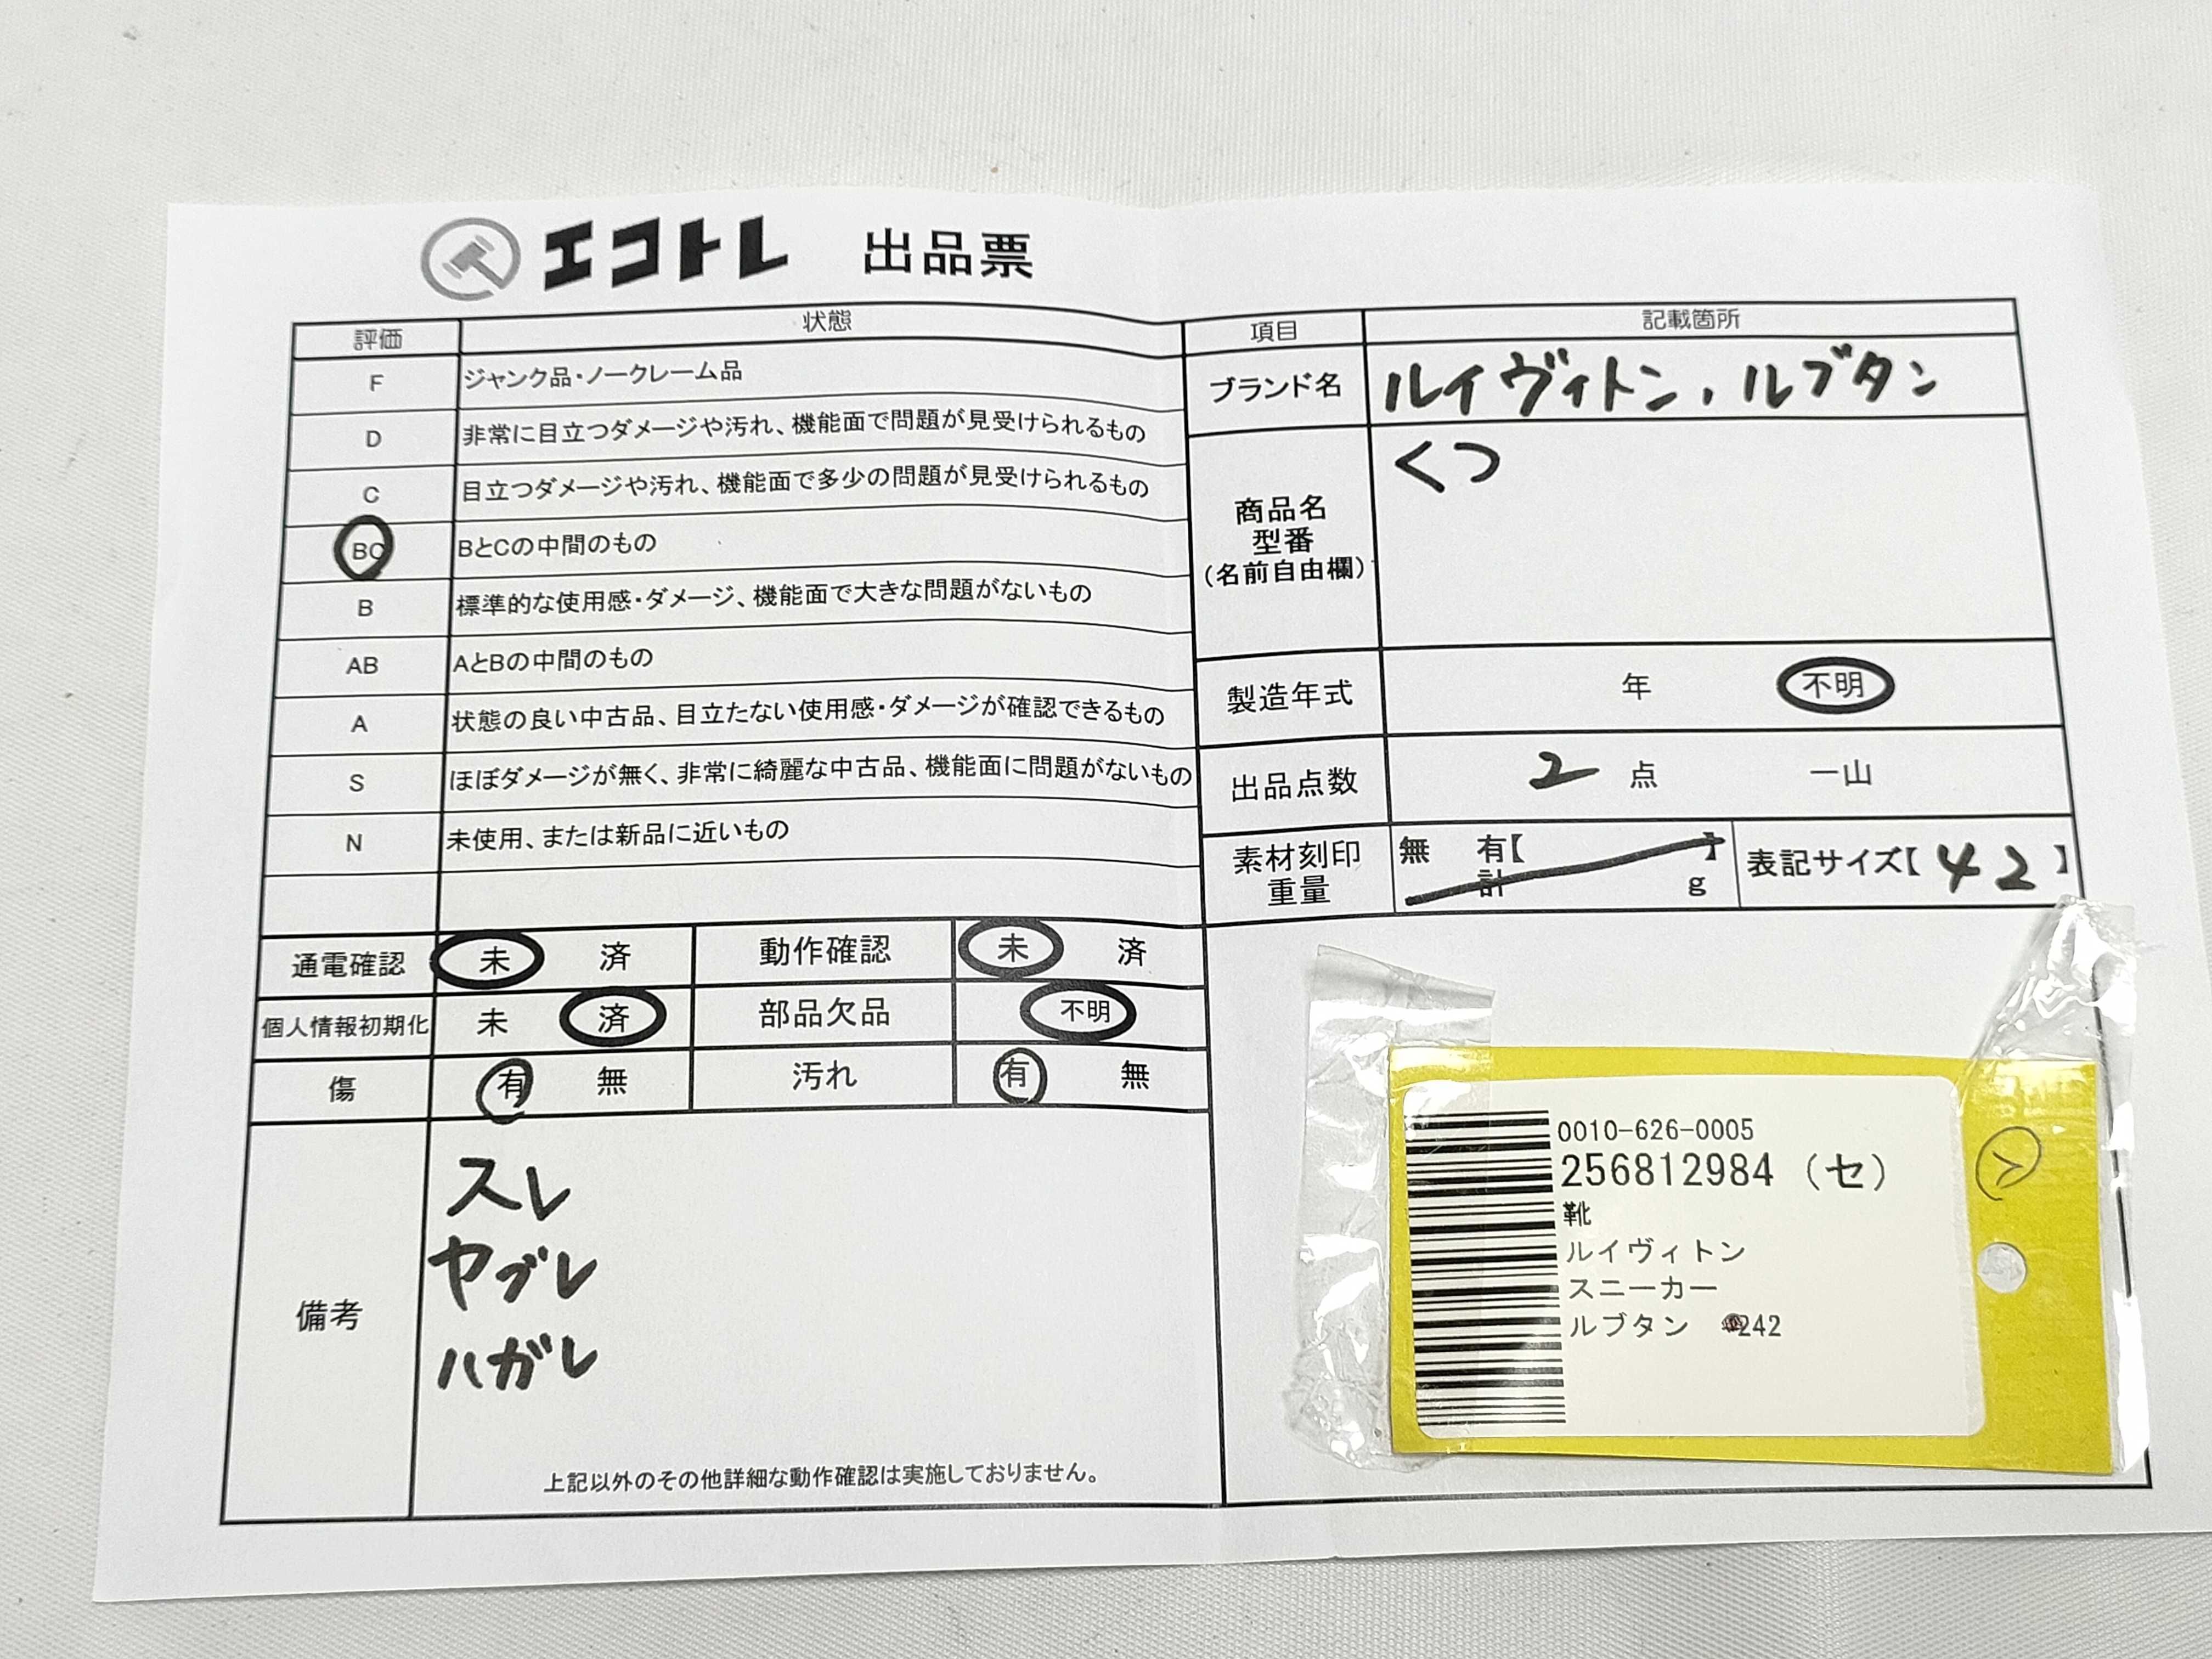 エコトレ 出品票
評価 状態
F ジャンク品・ノークレーム品
D 非常に目立つダメージや汚れ、機能面で問題が見受けられるもの
C 目立つダメージや汚れ、機能面で多少の問題が見受けられるもの
BC BとCの中間のもの
B 標準的な使用感・ダメージ、機能面で大きな問題がないもの
AB AとBの中間のもの
A 状態の良い中古品、目立たない使用感・ダメージが確認できるもの
S ほぼダメージが無く、非常に綺麗な中古品、機能面に問題がないもの
N 未使用、または新品に近いもの
通電確認 未 済 動作確認 未 済
個人情報初期化 未 済 部品欠品 不明
傷 有 無 汚れ 有 無
備考
スレ
ヤブレ
ハガレ
上記以外のその他詳細な動作確認は実施しておりません。
項目 記載箇所
ブランド名 ルイヴィトン、ルブタン
商品名
型番
(名前自由欄)
くつ
製造年式 年 不明
出品点数 2 点 一山
素材刻印
重量
無 有【 】
計 g
表記サイズ【42】
0010-626-0005
256812984 (セ)
靴
ルイヴィトン
スニーカー
ルブタン 242